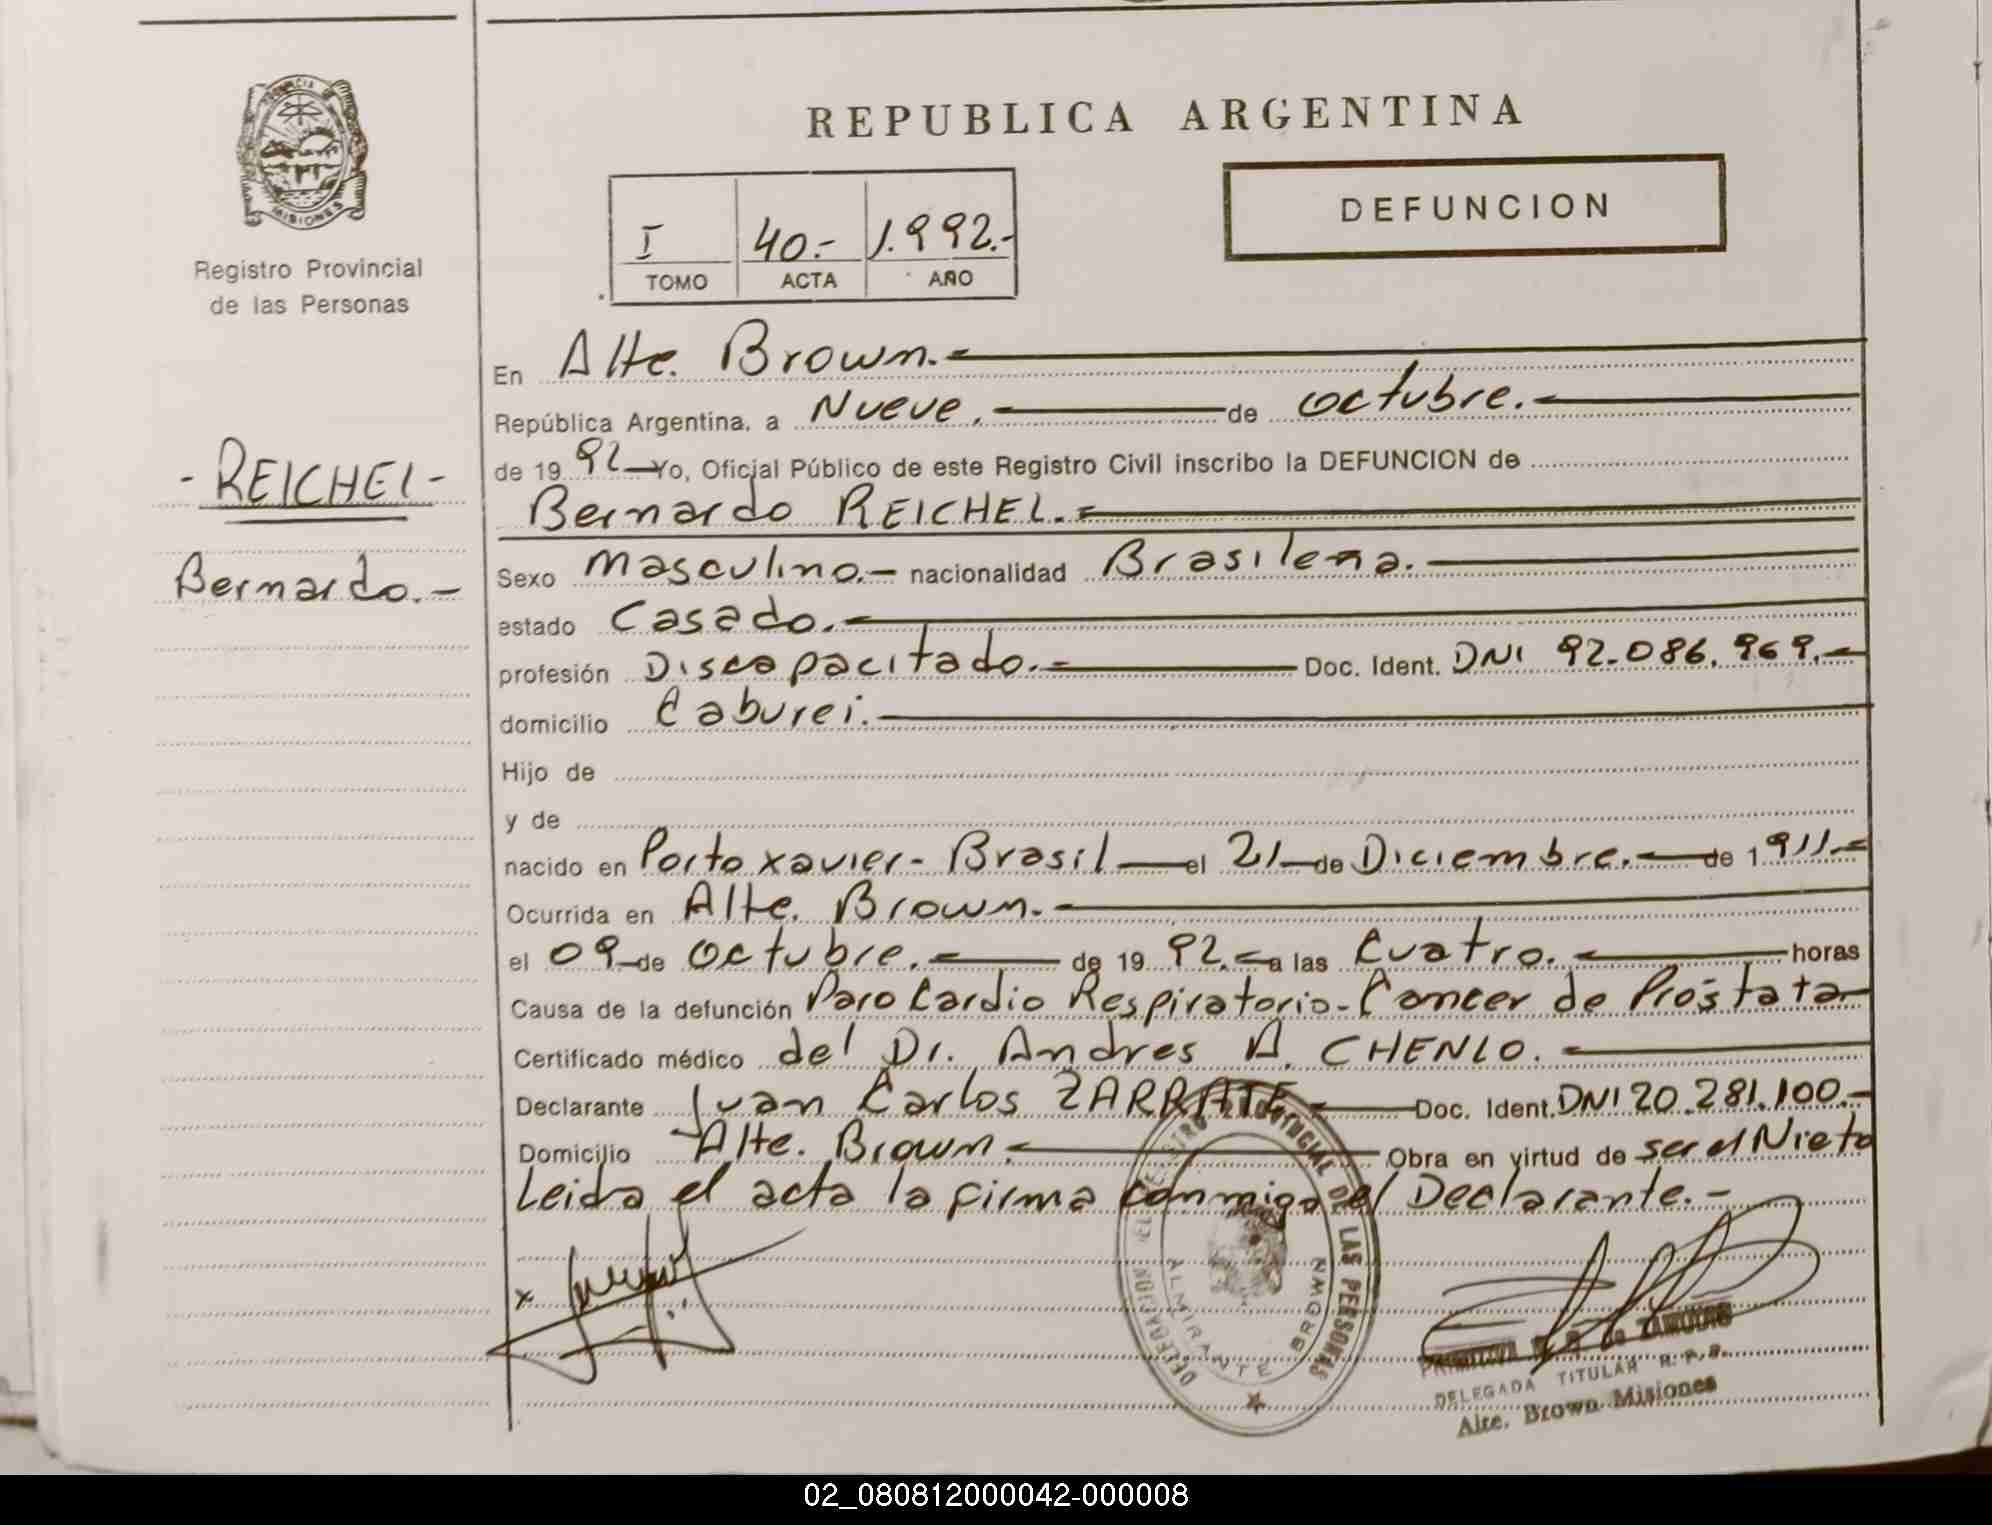 PROVINCIA DE
MISIONES
Registro Provincial
de las Personas
- REICHEL -
Bernardo.-
REPUBLICA ARGENTINA
I 40.- 1.992.-
TOMO ACTA AÑO
DEFUNCION
En Alte. Brown.-
República Argentina, a Nueve.- de octubre.-
de 19 92 Yo, Oficial Público de este Registro Civil inscribo la DEFUNCION de
Bernardo REICHEL.=
Sexo Masculino.- nacionalidad Brasilena.
estado Casado.-
profesión Discapacitado.- Doc. Ident. DNI 92.086.969.-
domicilio Caburei.-
Hijo de
y de
nacido en Porto xavier- Brasil el 21 de Diciembre.- de 1 911.-
Ocurrida en Alte. Brown.-
el 09 de octubre.- de 19 92.- a las Cuatro.- horas
Causa de la defunción Paro Cardio Respiratorio- Cancer de Próstata-
Certificado médico del Dr. Andres A. CHENLO.-
Declarante Juan Carlos ZARRATE - Doc. Ident. DNI 20.281.100.-
Domicilio Alte. Brown.- Obra en virtud de ser el Nieto
Leida el acta la firma conmigo el Declarante.-
x
DELEGACION DEL REGISTRO PROVINCIAL DE LAS PERSONAS
ALMIRANTE BROWN
de ZAMUDIO
DELEGADA TITULAR R. P. P.
Alte. Brown Misiones
02_080812000042-000008